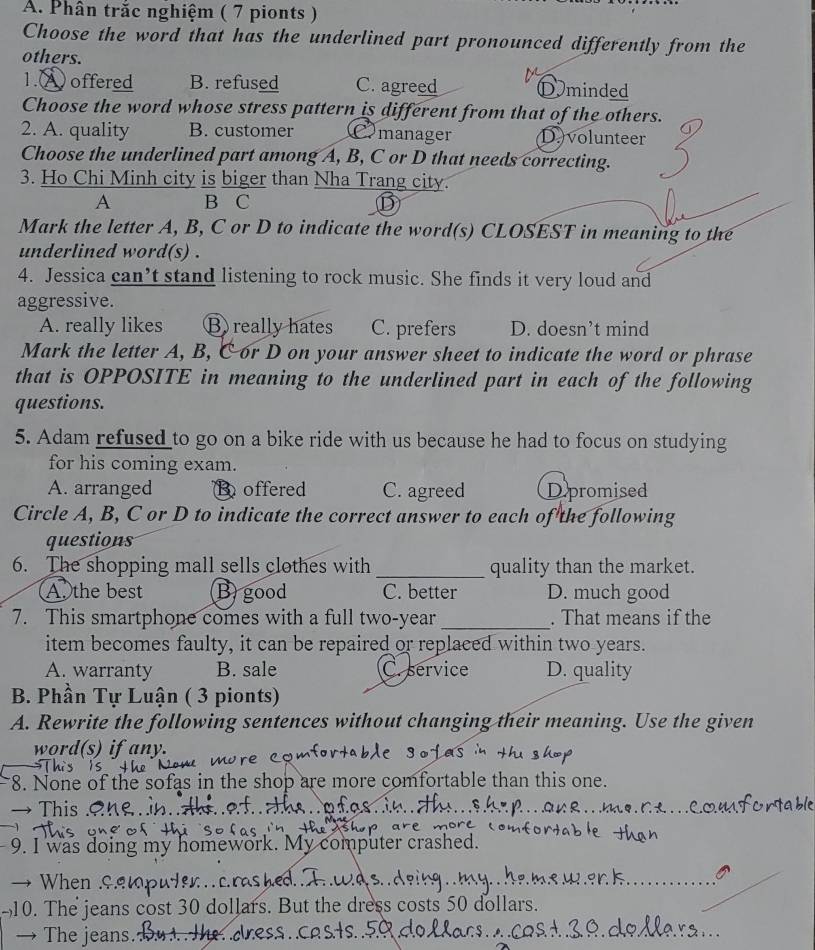 A. Phần trắc nghiệm ( 7 pionts )
Choose the word that has the underlined part pronounced differently from the
others.
1. A. offered B. refused C. agreed D. minded
Choose the word whose stress pattern is different from that of the others.
2. A. quality B. customer C. manager D. volunteer
Choose the underlined part among A, B, C or D that needs correcting.
3
3. Ho Chi Minh city is biger than Nha Trang city.
A B C D
Mark the letter A, B, C or D to indicate the word(s) CLOSEST in meaning to the
underlined word(s) .
4. Jessica can't stand listening to rock music. She finds it very loud and
aggressive.
A. really likes B. really hates C. prefers D. doesn't mind
Mark the letter A, B, C or D on your answer sheet to indicate the word or phrase
that is OPPOSITE in meaning to the underlined part in each of the following
questions.
5. Adam refused to go on a bike ride with us because he had to focus on studying
for his coming exam.
A. arranged B. offered C. agreed D. promised
Circle A, B, C or D to indicate the correct answer to each of the following
questions
6. The shopping mall sells clothes with __________ quality than the market.
A. the best B. good C. better D. much good
7. This smartphone comes with a full two-year __________. That means if the
item becomes faulty, it can be repaired or replaced within two years.
A. warranty B. sale C. service D. quality
B. Phần Tự Luận ( 3 pionts)
A. Rewrite the following sentences without changing their meaning. Use the given
word(s) if any.
This is the more comfortable sofas in the shop
8. None of the sofas in the shop are more comfortable than this one.
→ This one in the of the sofas in the shop are more comfortable
This one of the sofas in the shop are more comfortable than
9. I was doing my homework. My computer crashed.
→ When computer crashed I was doing my homework
10. The jeans cost 30 dollars. But the dress costs 50 dollars.
→ The jeans But the dress costs 50 dollars, cost 30 dollars